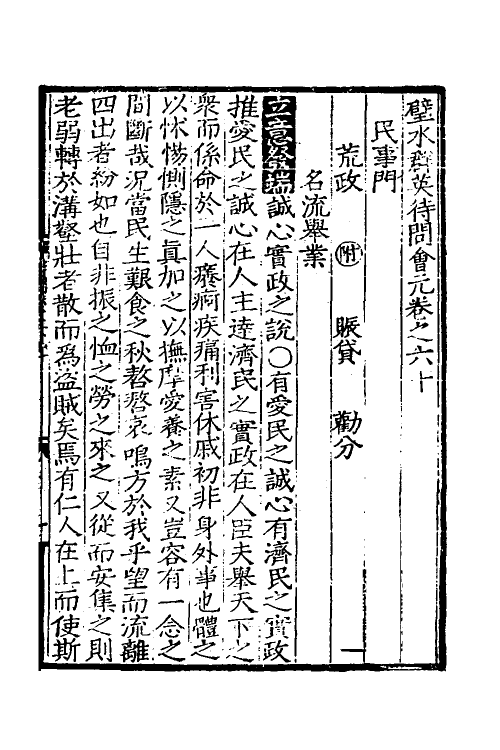 璧水群英待問會元卷之六十
民事門
荒政 附 賑貸 勸分
名流舉業
立意發端誠心實政之說○有愛民之誠心有濟民之實政
推愛民之誠心在人主達濟民之實政在人臣夫舉天下之
衆而係命於一人癢痾疾痛利害休戚初非身外事也體之
以怵惕惻隱之眞加之以撫摩愛養之素又豈容有一念之
間斷哉況當民生艱食之秋嗸嗸哀鳴方於我乎望而流離
四出者紛如也自非振之恤之勞之來之又從而安集之則
老弱轉於溝壑壯者散而爲盗賊矣焉有仁人在上而使斯
一